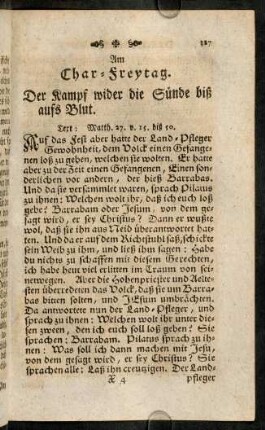 327
Am
Char-Freytag.
Der Kampf wider die Sünde biß
aufs Blut.
Text: Matth. 27. v. 15. bis 50.
Auf das Fest aber hatte der Land-Pfleger
Gewohnheit, dem Volck einen Gefange-
nen loß zu geben, welchen sie wolten. Er hatte
aber zu der Zeit einen Gefangenen, Einen son-
derlichen vor andern, der hieß Barrabas.
Und da sie versammlet waren, sprach Pilatus
zu ihnen: Welchen wolt ihr, daß ich euch loß
gebe? Barrabam oder Jesum, von dem ge-
sagt wird, er sey Christus? Dann er wußte
wol, daß sie ihn aus Neid überantwortet hat-
ten. Und da er auf dem Richtstuhl saß, schickte
sein Weib zu ihm, und ließ ihm sagen: Habe
du nichts zu schaffen mit diesem Gerechten,
ich habe heut viel erlitten im Traum von sei-
netwegen. Aber die Hohenpriester und Aelte-
sten überredeten das Volck, daß sie um Barra-
bas bitten solten, und JEsum umbrächten.
Da antwortete nun der Land-Pfleger, und
sprach zu ihnen: Welchen wolt ihr unter die-
sen zween, den ich euch soll loß geben? Sie
sprachen: Barrabam. Pilatus sprach zu ih-
nen: Was soll ich dann machen mit Jesu,
von dem gesagt wird, er sey Christus? Sie
sprachen alle: Laß ihn creuzigen. Der Land-
X 4 pfleger